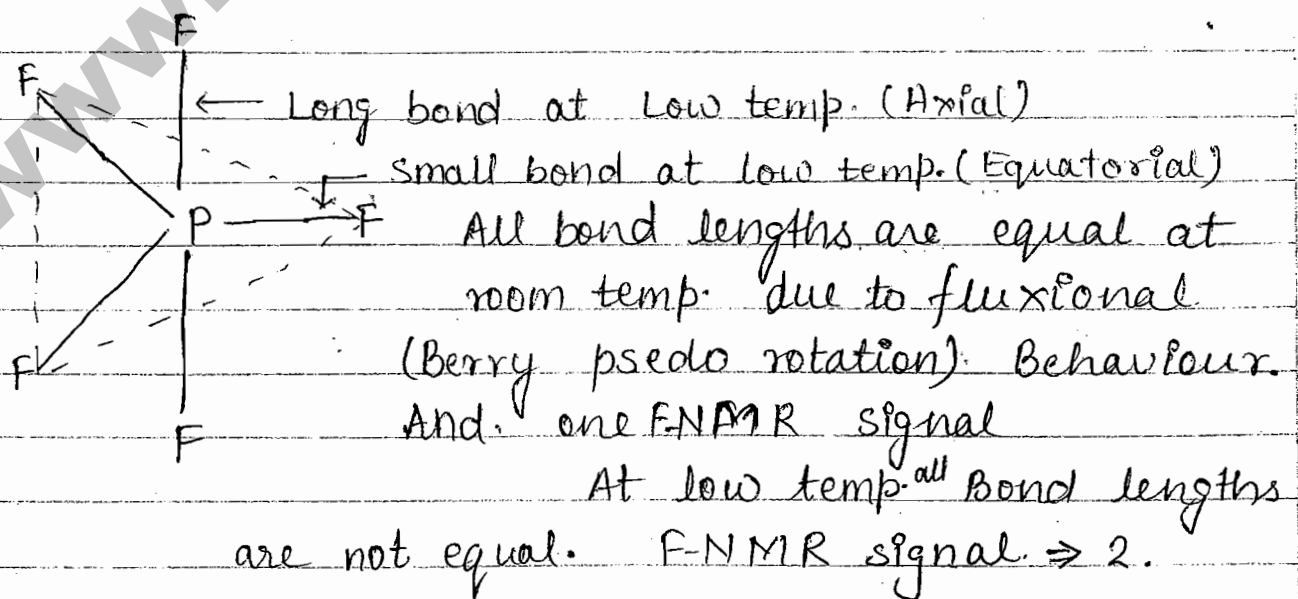 F
F
← Long bond at Low temp. (Axial)
small bond at low temp. (Equatorial)
P F All bond lengths are equal at
room temp. due to fluxional
F (Berry psedo rotation). Behaviour.
F And. one F-NMR signal
At low temp. all Bond lengths
are not equal. F-NMR signal. ⇒ 2.